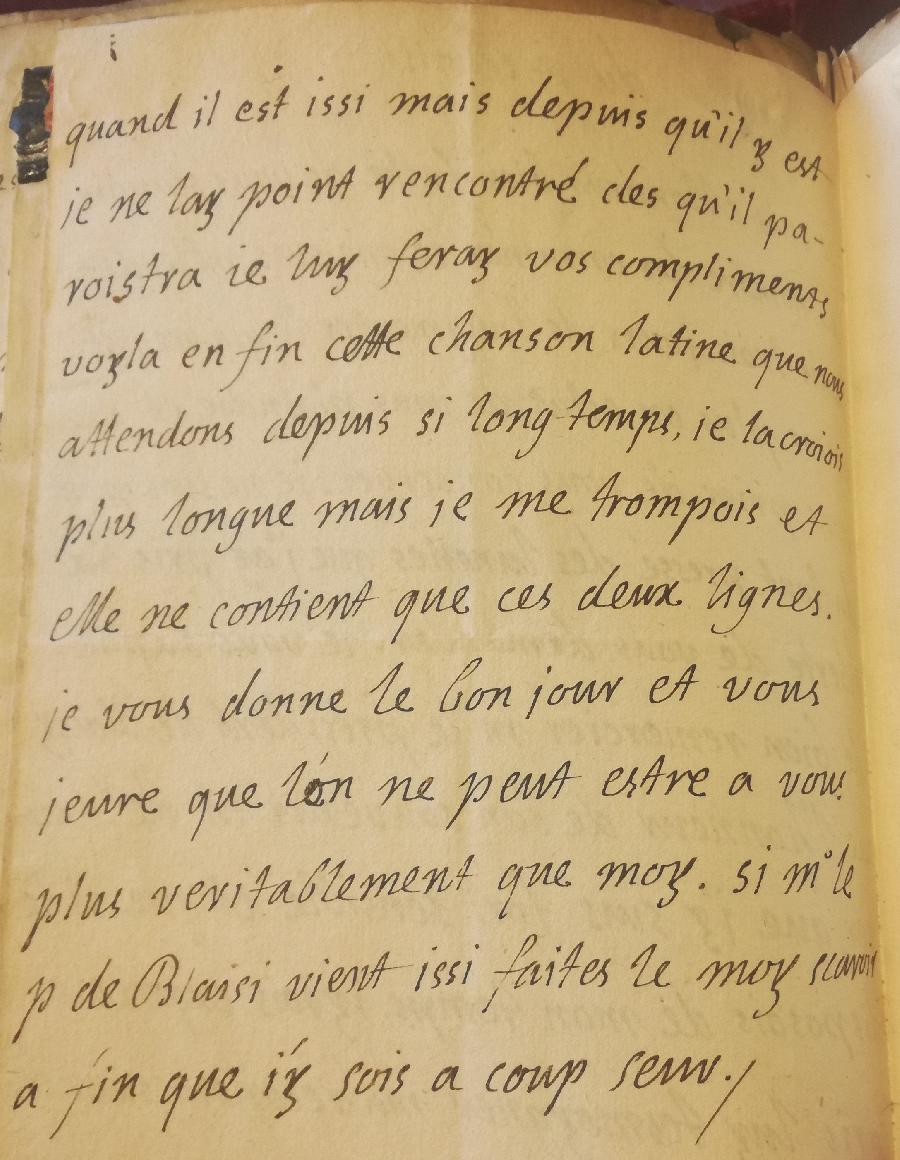 quand il est issi mais depuis qu'il y est
je ne lay point rencontré des qu'il pa-
roistra ie luy feray vos compliments
voyla en fin cette chanson latine que nous
attendons depuis si long-temps, ie la croiois
plus longue mais je me trompois et
elle ne contient que ces deux lignes.
je vous donne le bon jour et vous
jeure que l'on ne peut estre a vous
plus veritablement que moy. si mr le
p de Blaisi vient issi faites le moy scavoir
a fin que i'y sois a coup seur./